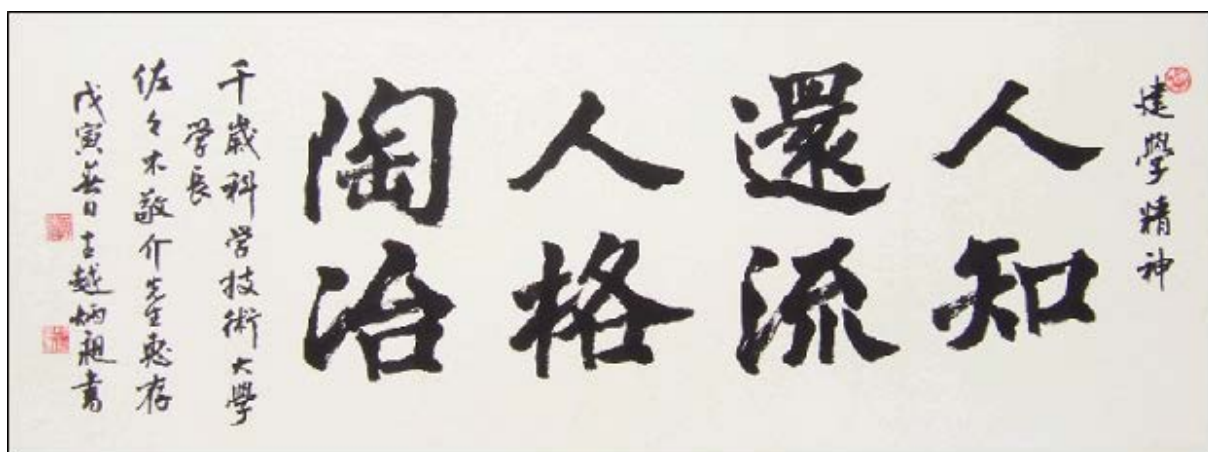 建學精神
人知
還流
人格
陶冶
千歳科学技術大學
学長
佐々木敬介先生惠存
戊寅春日古越炳昶書